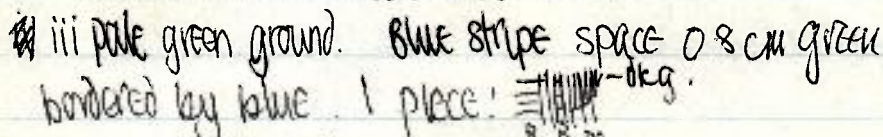 iii pale green ground. Blue stripe space 0 8 cm green
bordered by blue. 1 piece: -bkg.